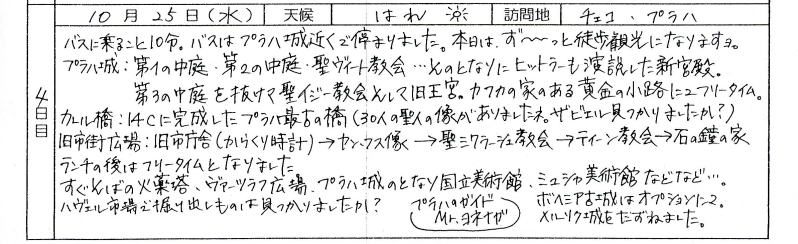 10月25日(水) 天候 はれ 涼 訪問地 チェコ・プラハ
4日目
バスに乗ること10分。バスはプラハ城近くで停まりました。本日は、ず〜〜っと徒歩観光になりますョ。
プラハ城:第1の中庭・第2の中庭・聖ヴィート教会…そのとなりにヒットラーも演説した新宮殿。
第3の中庭を抜けて聖イジー教会そして旧王宮。カフカの家のある黄金の小路にてフリータイム。
カレル橋:14Cに完成したプラハ最古の橋(30人の聖人の像がありましたネ。ザビエル見つかりましたか?)
旧市街広場:旧市庁舎(からくり時計)→ヤン・フス像→聖ミクラーシュ教会→ティーン教会→石の鐘の家
ランチの後はフリータイムとなりました
すぐそばの火薬塔、ヴァーツラフ広場、プラハ城のとなり国立美術館、ミュシャ美術館などなど…。
ハヴェル市場で掘り出しものは見つかりましたかし?
プラハのガイド
Mr.ヨネナガ
ボヘミア古城はオプションにて。
メルニク城をたずねました。